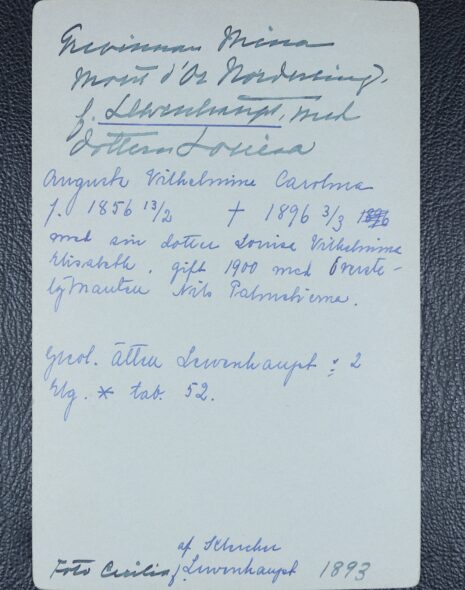 Grevinnan Mina
Mörner d'Oz Nordenving,
f. Lewenhaupt, med
dottern Louisa
Augusta Vilhelmina Carolina
f. 1856 13/2 † 1896 3/3
med sin dotter Louise Vilhelmina
Elisabeth, gift 1900 med Överste-
löjtnanten Nils Palmstierna.
Greol. ätten Lewenhaupt : 2
Elg. * tab. 52.
af Klercker
Foto Cecilia f. Lewenhaupt 1893